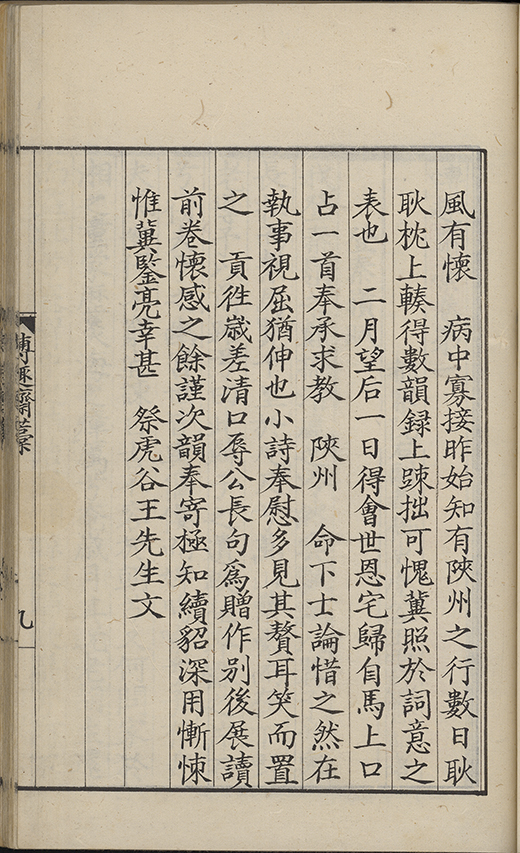 風有懷　病中寡接昨始知有陝州之行數日耿
耿枕上輳得數韻録上踈拙可愧冀照於詞意之
表也　二月望后一日得會世恩宅歸自馬上口
占一首奉承求教　陝州　命下士論惜之然在
執事視屈猶伸也小詩奉慰多見其贅耳笑而置
之　貢徃嵗差清口辱公長句爲贈作别後展讀
前卷懷感之餘謹次韻奉寄極知續貂深用慚悚
惟冀鍳亮幸甚　祭虎谷王先生文
博趣齋藁
九